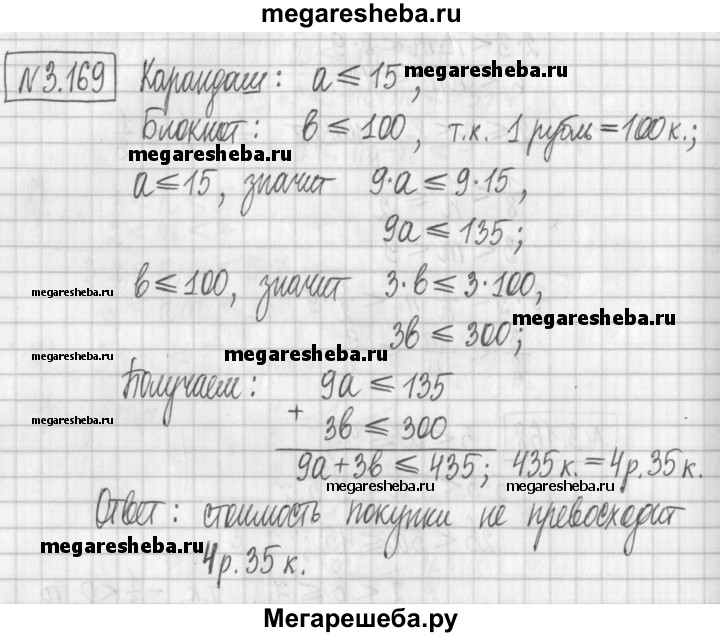 megaresheba.ru
N 3.169 Карандаш: a ⩽ 15, megaresheba.ru
Блокнот: в ⩽ 100, т.к. 1 рубль = 100к.;
megaresheba.ru
a ⩽ 15, значит 9·a ⩽ 9·15,
9a ⩽ 135;
megaresheba.ru в ⩽ 100, значит 3·в ⩽ 3·100,
megaresheba.ru
3в ⩽ 300;
megaresheba.ru megaresheba.ru
Получаем: 9a ⩽ 135
megaresheba.ru + 3в ⩽ 300
9a + 3в ⩽ 435; 435 к. = 4р. 35 к.
megaresheba.ru megaresheba.ru
Ответ: стоимость покупки не превосходит
megaresheba.ru
4р. 35 к.
Мегарешеба.ру